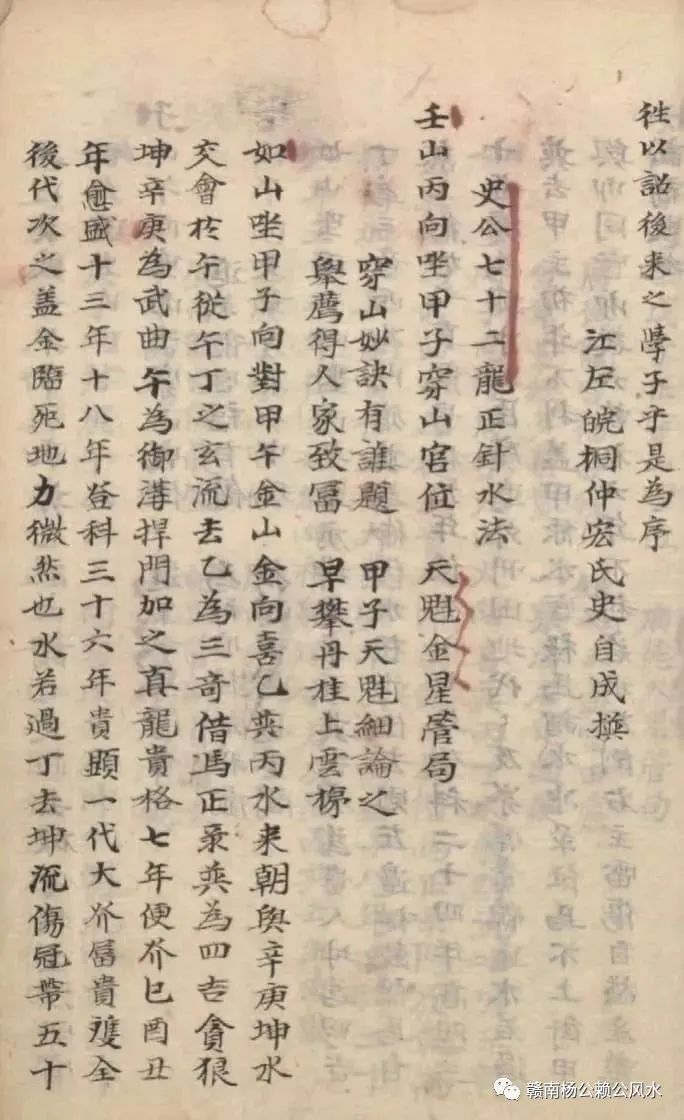 徃以詔後来之學子乎是為序
江左皖桐仲宏氏史自成撰
史公七十二龍正針水法
壬山丙向坐甲子穿山官位 天魁金星管局
穿山妙訣有誰題 甲子天魁細論之
舉薦得人家致冨 早攀丹桂上雲梯
如山坐甲子向對甲午金山金向喜乙巽丙水来朝與辛庚坤水
交會於午從午丁之玄流去乙為三奇借馮正录巽為四吉貪狼
坤辛庚為武曲午為御溝捍門加之真龍貴格七年便發巳酉丑
年愈盛十三年十八年登科三十六年貴顕一代大發冨貴雙全
後代次之盖金臨死地力微然也水若過丁去坤流傷冠帶五十
赣南杨公赖公风水